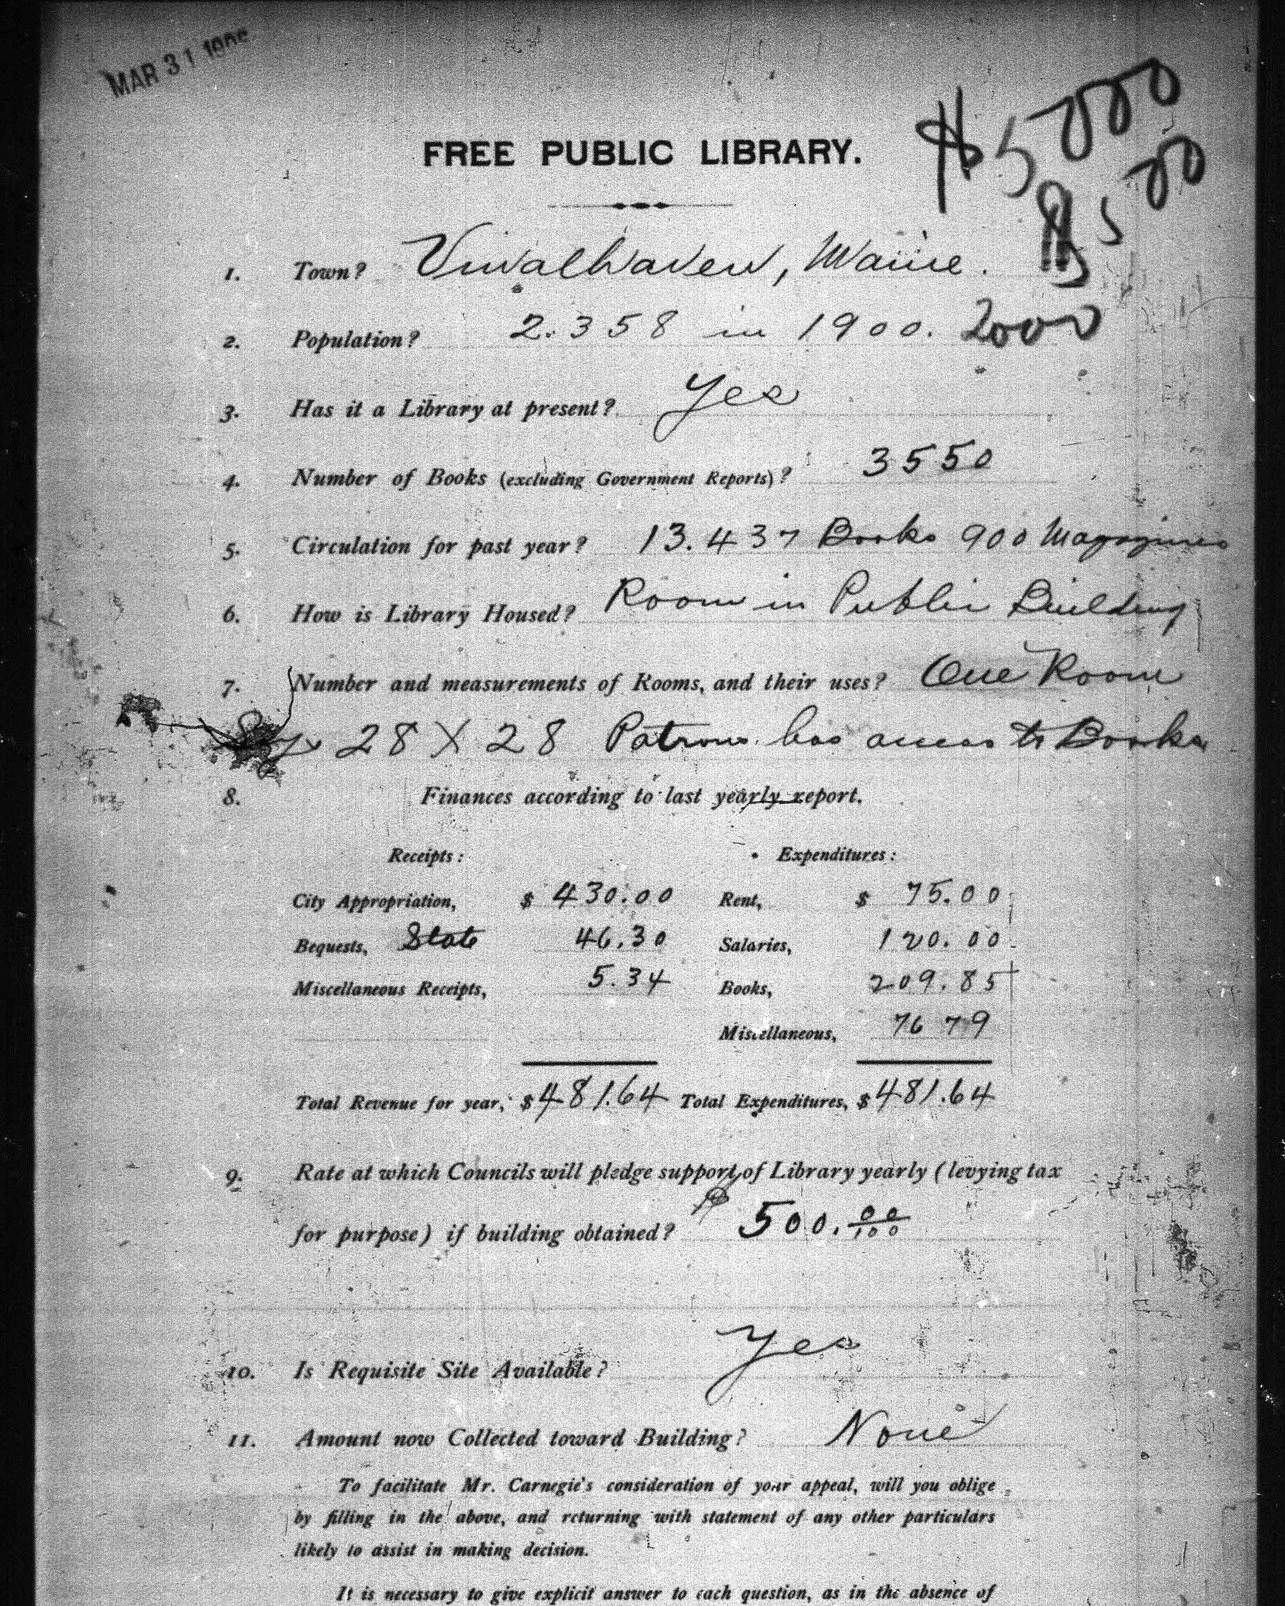 MAR 31
$5000
FREE PUBLIC LIBRARY.
1. Town? Vinalhaven, Maine.
2. Population? 2.358 in 1900. 2000
3. Has it a Library at present? Yes
4. Number of Books (excluding Government Reports)? 3550
5. Circulation for past year? 13.437 Books 900 Magazines
6. How is Library Housed? Room in Public Building
7. Number and measurements of Rooms, and their uses? One Room
28 X 28 Patrons has access to Books
8. Finances according to last yearly report.
Receipts: Expenditures:
City Appropriation, $ 430.00 Rent, $ 75.00
Bequests, State 46.30 Salaries, 120.00
Miscellaneous Receipts, 5.34 Books, 209.85
Miscellaneous, 76 79
Total Revenue for year, $481.64 Total Expenditures, $481.64
9. Rate at which Councils will pledge support of Library yearly (levying tax
for purpose) if building obtained? 500.00/100
10. Is Requisite Site Available? Yes
11. Amount now Collected toward Building? None
To facilitate Mr. Carnegie's consideration of your appeal, will you oblige
by filling in the above, and returning with statement of any other particulars
likely to assist in making decision.
It is necessary to give explicit answer to each question, as in the absence of